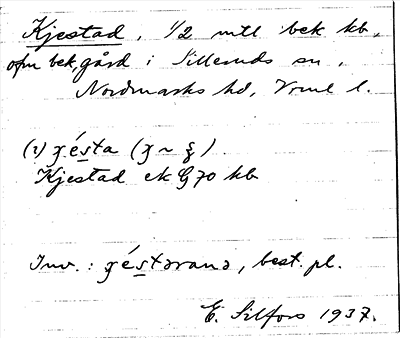 Kjestad, 1/2 mtl bek kb,
ofm bek, gård i Silleruds sn,
Nordmarks hd, Vrml l.
(1) ɟésta (ɟ ~ ʒ)
Kjestad ek G 70 kb
Inv.: ɟéstərana, best. pl.
E. Silfors 1937.